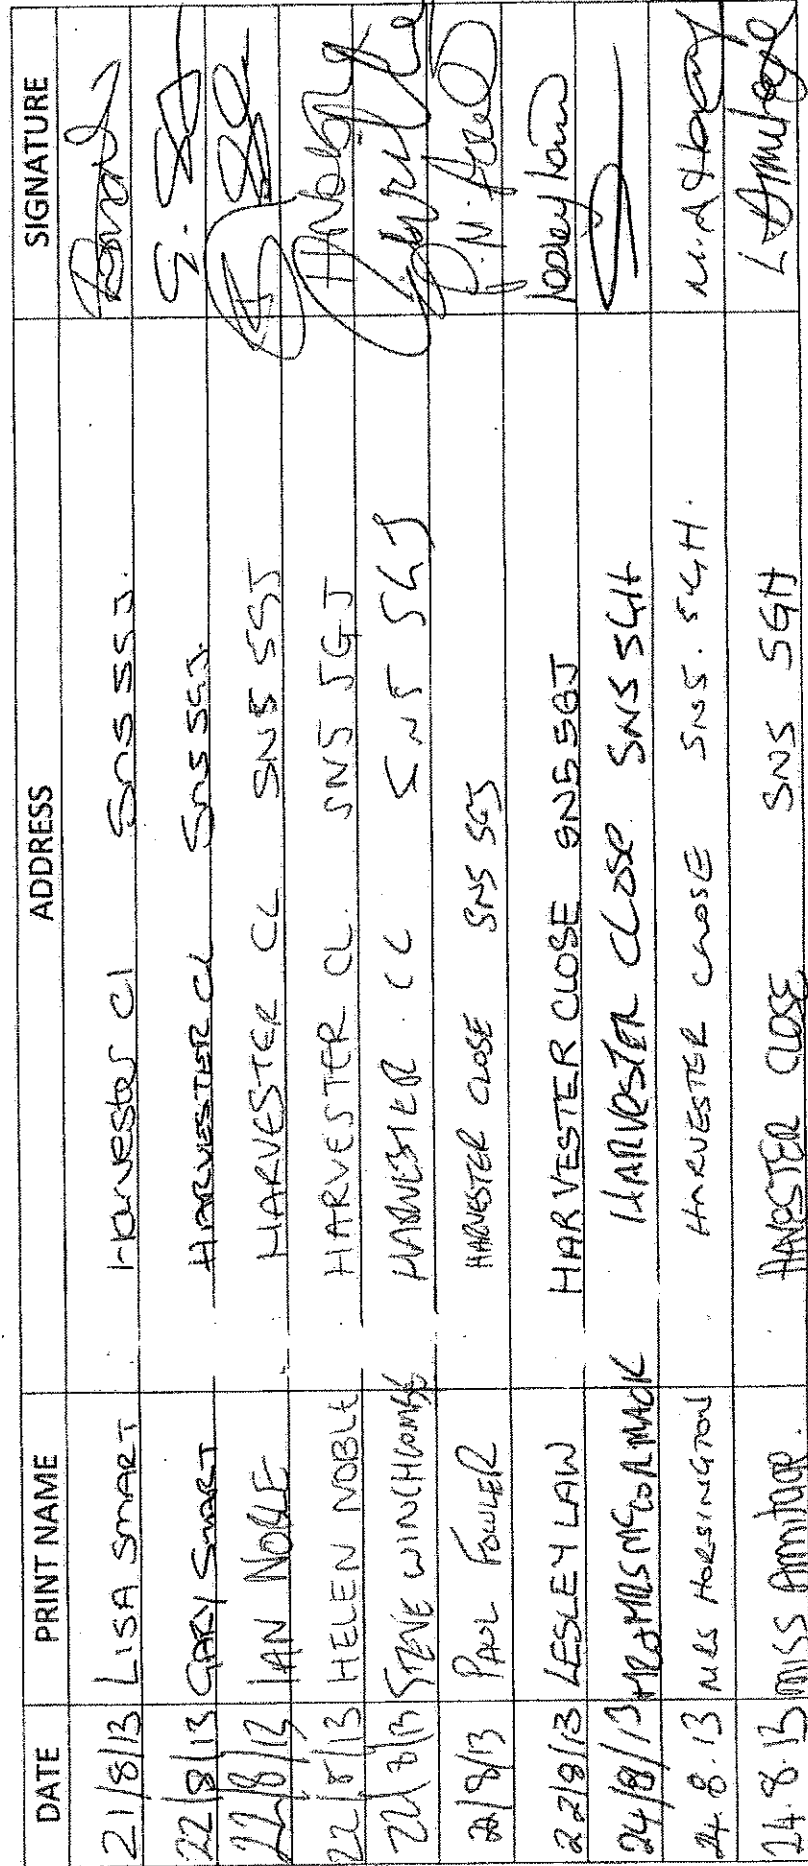 DATE PRINT NAME ADDRESS SIGNATURE
21/8/13 LISA SMART Harvester Cl SN5 5SJ.
22/8/13 GARY SMART HARVESTER CL SN5 5GJ.
22/8/13 IAN NOBLE HARVESTER CL SN5 5SJ
22/8/13 HELEN NOBLE HARVESTER CL. SN5 5GJ HNoble
22/8/13 STEVE WINCHCOMBE HARVESTER . CL SN5 5GJ
22/8/13 PAUL FOWLER HARVESTER CLOSE SN5 5GJ
22/8/13 LESLEY LAW HARVESTER CLOSE SN5 5GJ Lesley Law
24/8/13 MR & MRS McCORMACK HARVESTER CLOSE SN5 5GH
24.8.13 MRS HORSINGTON HARVESTER CLOSE SN5. 5GH.
24.8.13 MISS Armitage. HAVESTER CLOSE SN5 5GH L Armitage